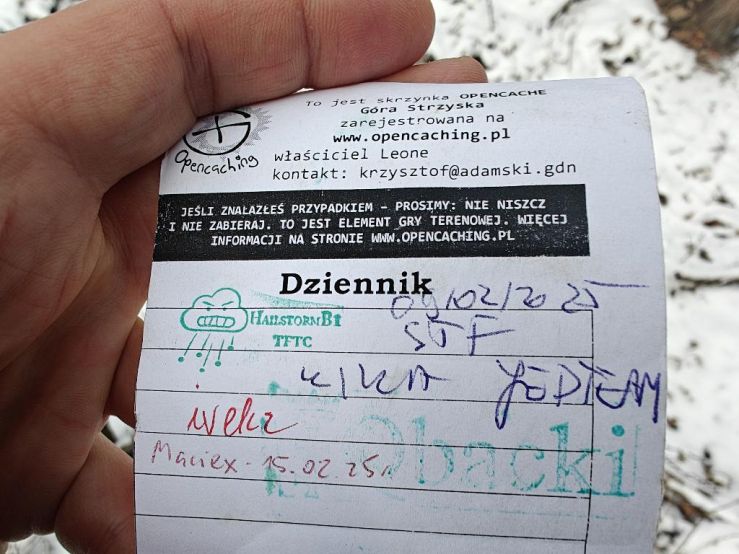 To jest skrzynka OPENCACHE
Góra Strzyska
zarejestrowana na
www.opencaching.pl
Opencaching
właściciel Leone
kontakt: krzysztof@adamski.gdn
JEŚLI ZNALAZŁEŚ PRZYPADKIEM – PROSIMY: NIE NISZCZ
I NIE ZABIERAJ. TO JEST ELEMENT GRY TERENOWEJ. WIĘCEJ
INFORMACJI NA STRONIE WWW.OPENCACHING.PL
Dziennik
09/02/2025
HAILSTORMB1
TFTC
STF
KIKA
ivekz
Maciex - 15.02.25r.
Obacki